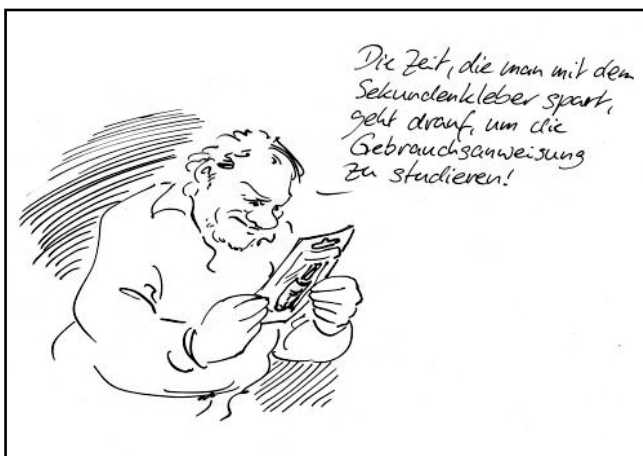 Die Zeit, die man mit dem
Sekundenkleber spart,
geht drauf, um die
Gebrauchsanweisung
zu studieren!